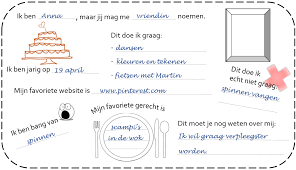 Ik ben Anna, maar jij mag me vriendin noemen.
Dit doe ik graag:
- dansen
- kleuren en tekenen
- fietsen met Martin
Ik ben jarig op 19 april
Dit doe ik
echt niet graag:
spinnen vangen
Mijn favoriete website is www.pinterest.com
Mijn favoriete gerecht is
scampi's
in de wok
Ik ben bang van
spinnen
Dit moet je nog weten over mij:
Ik wil graag verpleegster
worden.